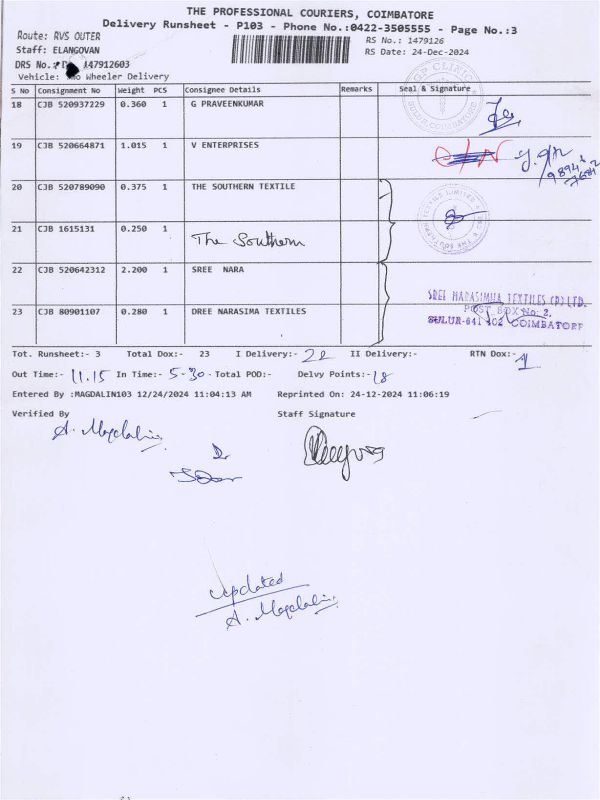 THE PROFESSIONAL COURIERS, COIMBATORE
Delivery Runsheet - P103 - Phone No.:0422-3505555 - Page No.:3
Route: RVS OUTER
RS No.: 1479126
Staff: ELANGOVAN
RS Date: 24-Dec-2024
DRS No.: 147912603
Vehicle: Two Wheeler Delivery
S No Consignment No Weight PCS Consignee Details Remarks Seal & Signature
18 CJB 520937229 0.360 1 G PRAVEENKUMAR
19 CJB 520664871 1.015 1 V ENTERPRISES
20 CJB 520789090 0.375 1 THE SOUTHERN TEXTILE
21 CJB 1615131 0.250 1 The Southern
22 CJB 520642312 2.200 1 SREE NARA
SREE NARASIMHA TEXTILES (P) LTD.
POST BOX No: 2.
SULUR-641 402 COIMBATORE
23 CJB 80901107 0.280 1 DREE NARASIMA TEXTILES
Tot. Runsheet:- 3 Total Dox:- 23 I Delivery:- 22 II Delivery:- RTN Dox:- 1
Out Time:- 11.15 In Time:- 5-30 - Total POD:- Delvy Points:- 18
Entered By :MAGDALIN103 12/24/2024 11:04:13 AM Reprinted On: 24-12-2024 11:06:19
Verified By Staff Signature
A. Magdalin
Updated
A. Magdalin